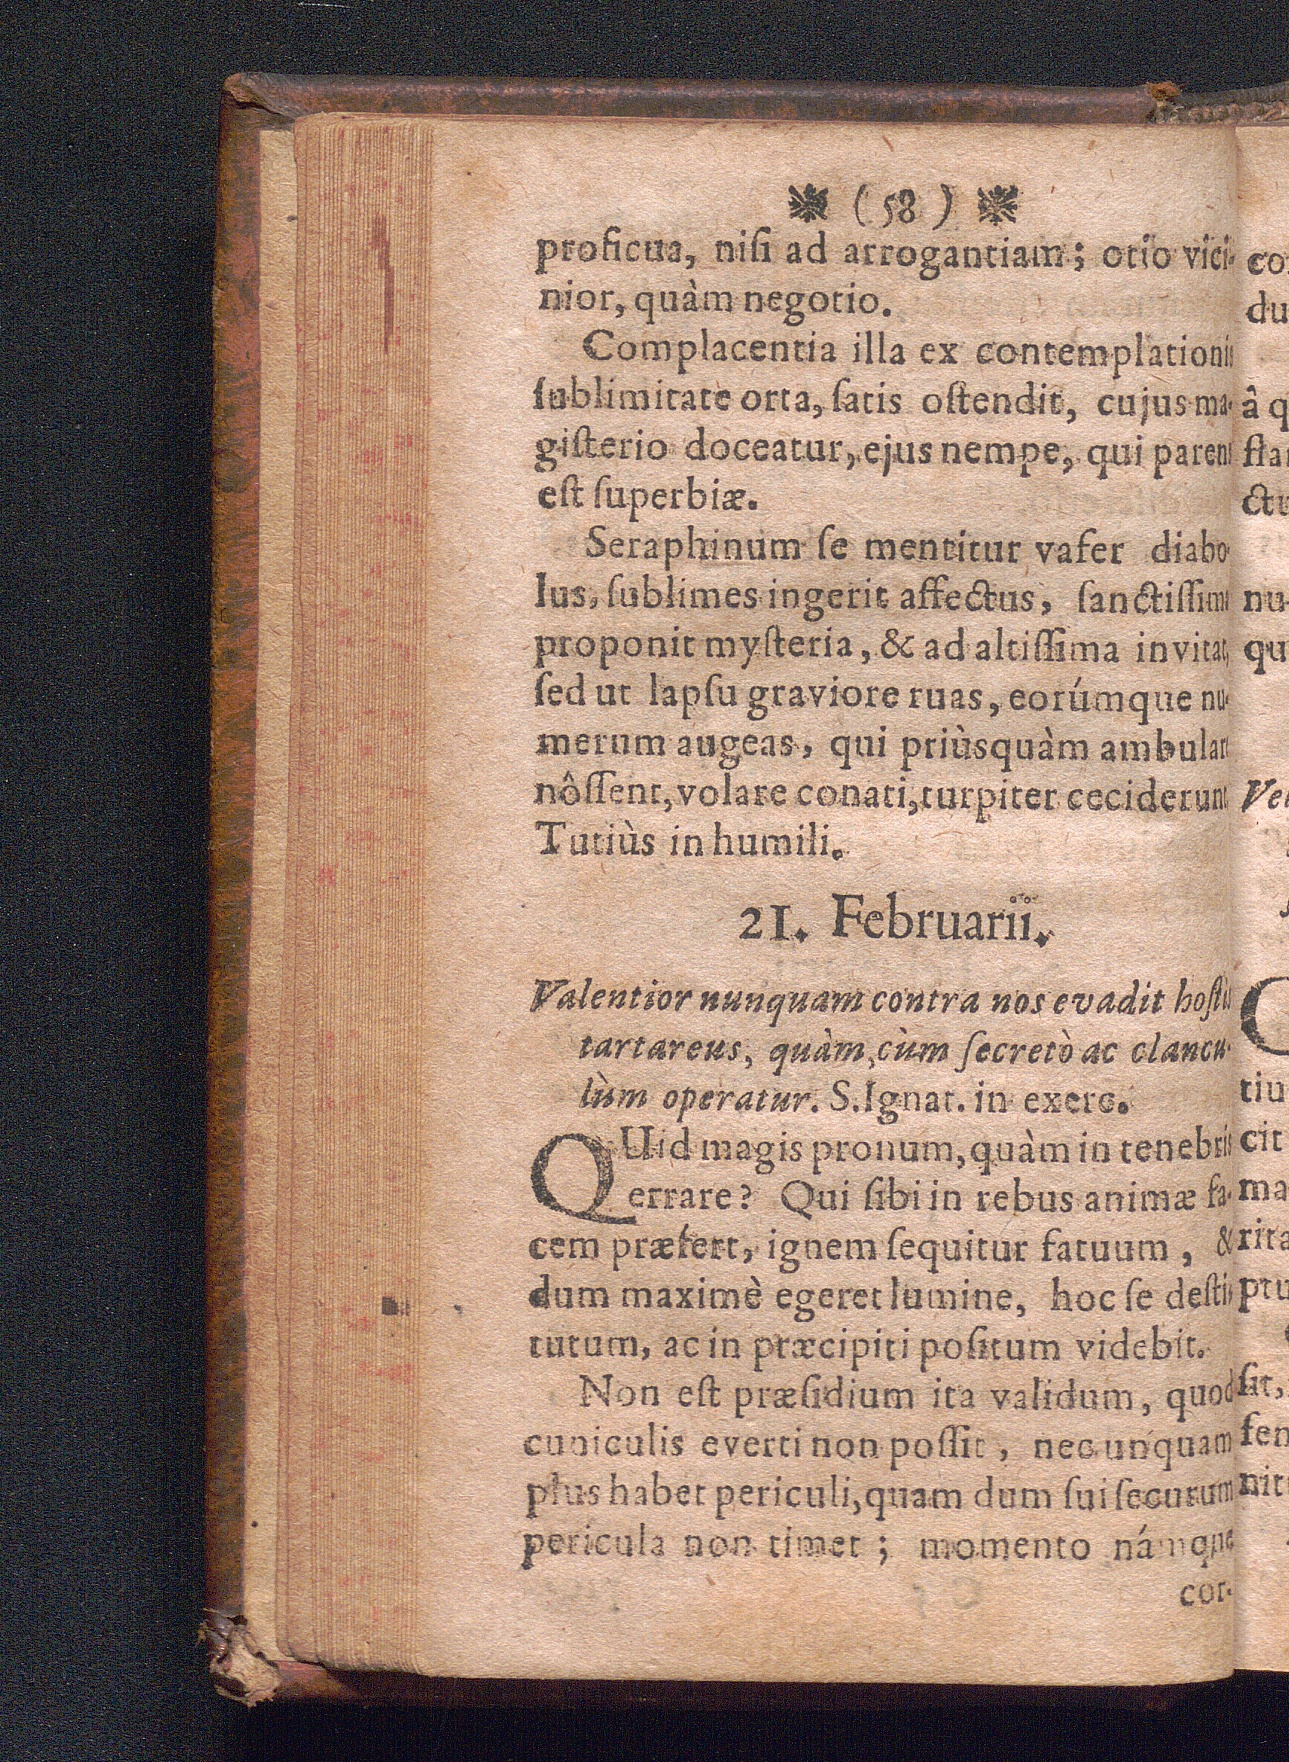 (58)
proficua, niſi ad arrogantiam; otio vici-
nior, quàm negotio.
Complacentia illa ex contemplationis
ſublimitate orta, ſatis oſtendit, cujus ma-
giſterio doceatur, ejus nempe, qui parens
eſt ſuperbiæ.
Seraphinum ſe mentitur vafer diabo-
lus, ſublimes ingerit affectus, ſanctiſſima
proponit myſteria, & ad altiſſima invitat,
ſed ut lapſu graviore ruas, eorúmque nu-
merum augeas, qui priùsquàm ambulare
nôſſent, volare conati, turpiter ceciderunt
Tutiùs in humili.
21. Februarii.
Valentior nunquam contra nos evadit hoſtis
tartareus, quàm, cùm ſecretò ac clancu-
lùm operatur. S. Ignat. in exerc.
QUid magis pronum, quàm in tenebris
errare? Qui ſibi in rebus animæ fa-
cem præfert, ignem ſequitur fatuum, &
dum maximè egeret lumine, hoc ſe deſti-
tutum, ac in præcipiti poſitum videbit.
Non eſt præſidium ita validum, quod
cuniculis everti non poſſit, nec unquam
plus habet periculi, quam dum ſui ſecurum
pericula non timet; momento námque
cor-